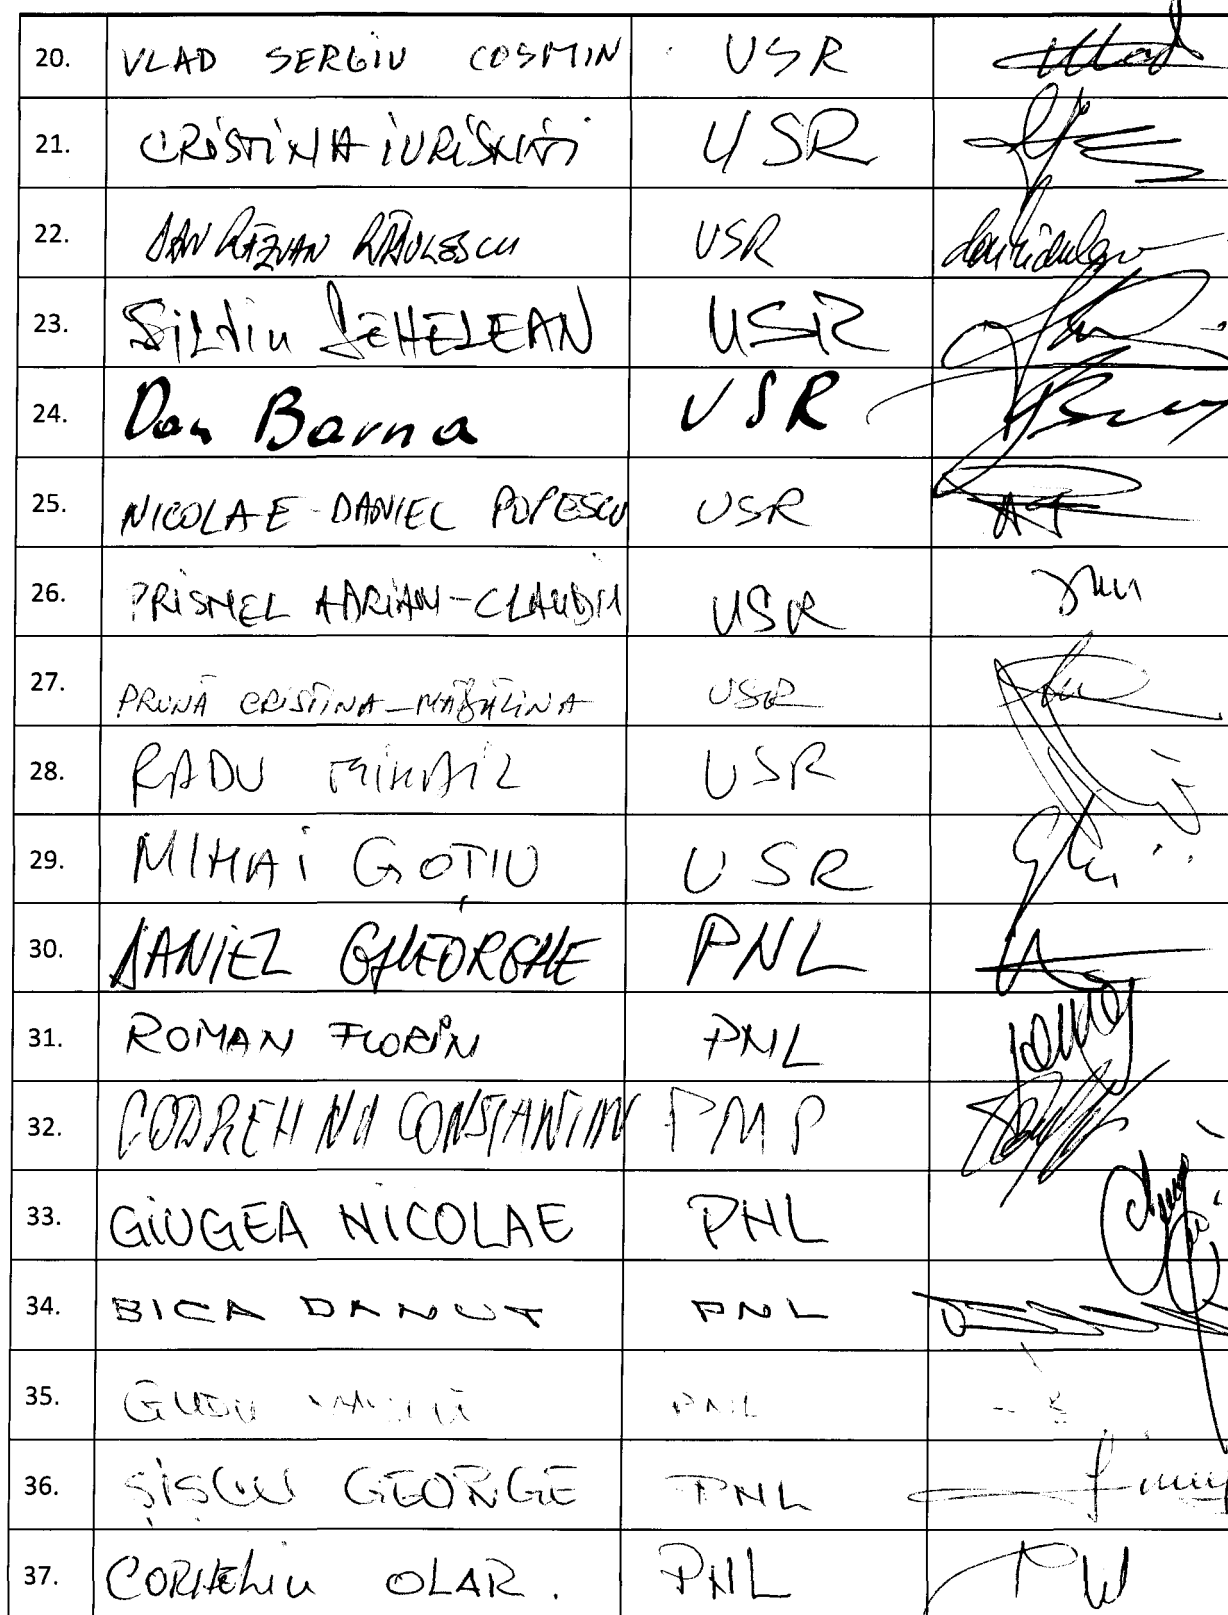 20. VLAD SERGIU COSMIN USR Vlad
21. CRISTINA IURIȘNIȚI USR
22. DAN RĂZVAN RĂDULESCU USR
23. Silviu DEHELEAN USR
24. Dan Barna USR
25. NICOLAE-DANIEL POPESCU USR
26. PRISNEL ADRIAN-CLAUDIU USR
27. PRUNĂ CRISTINA-MĂDĂLINA USR
28. RADU MIHAIL USR
29. MIHAI GOȚIU USR
30. DANIEL GHEORGHE PNL
31. ROMAN FLORIN PNL
32. CODREANU CONSTANTIN PMP
33. GIUGEA NICOLAE PNL
34. BICA DANUT PNL
35. GUDU PNL
36. ȘIȘCU GEORGE PNL
37. CORNELIU OLAR. PNL